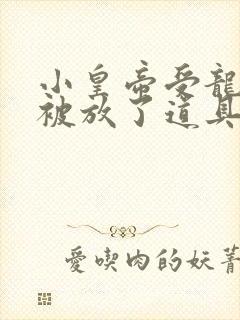 小皇帝受龍
被放了道具
愛喫肉的妖菁